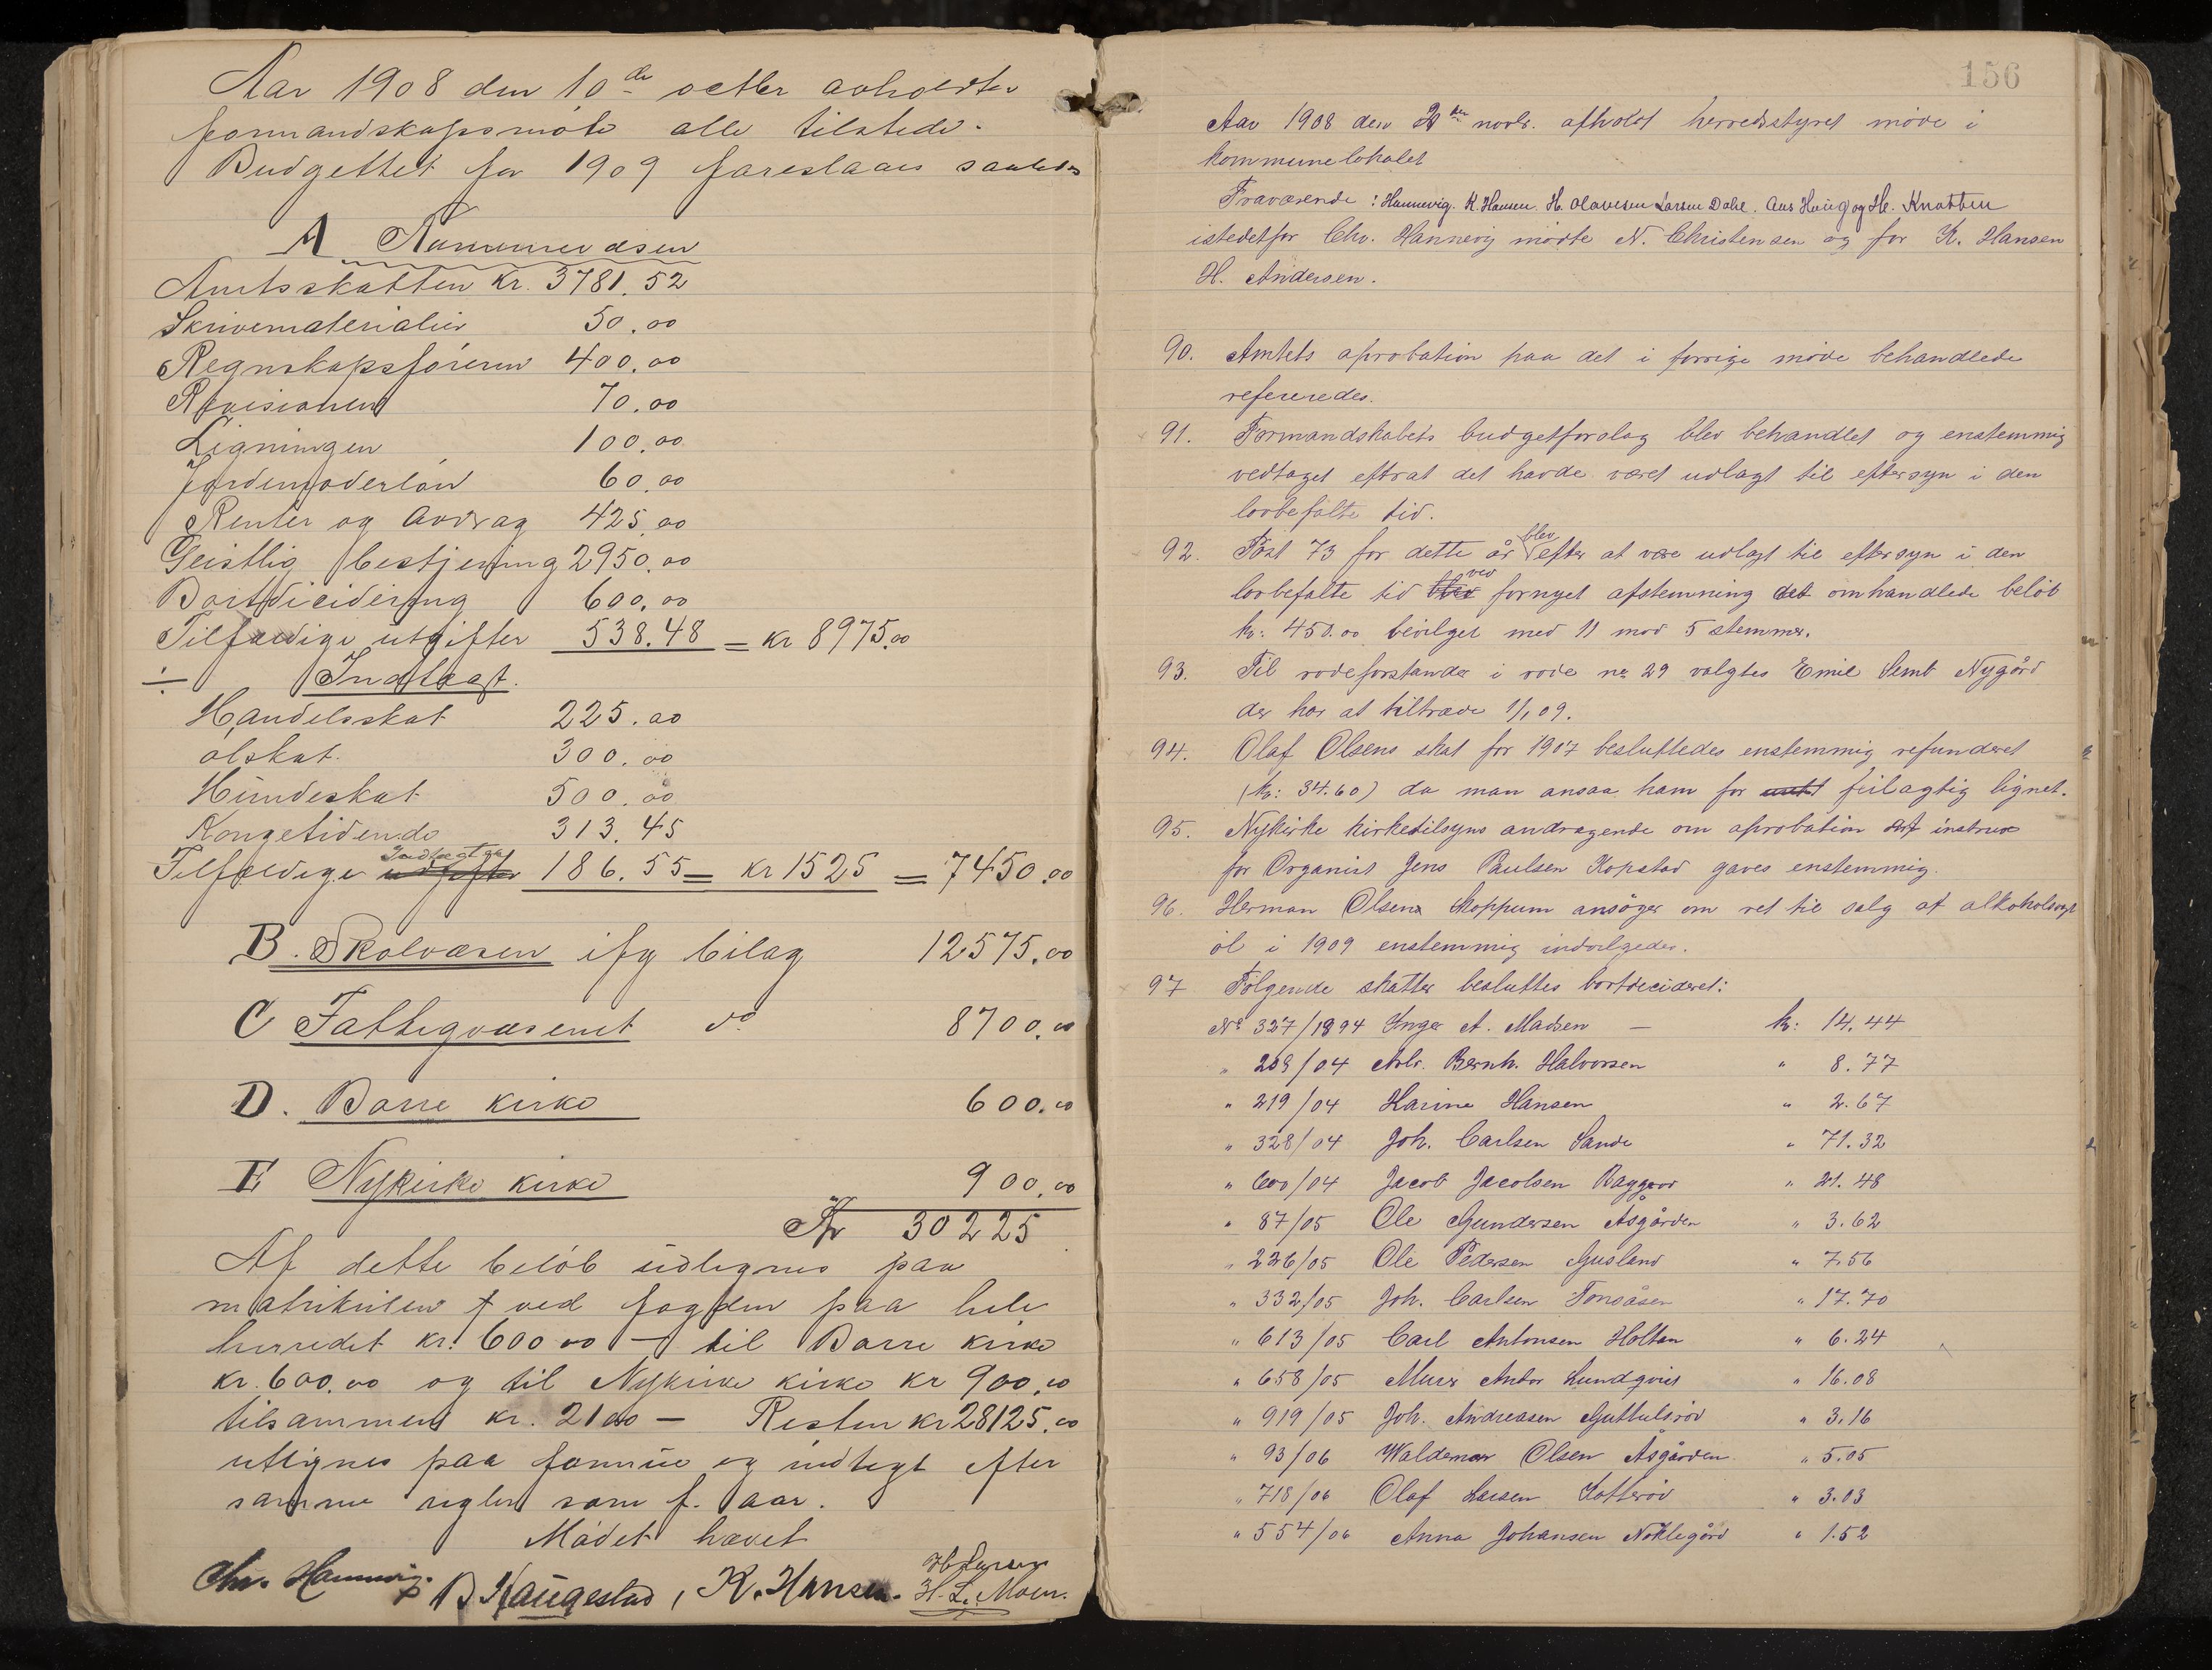 Aar 1908 den 10de octbr avholdtes
formandskapsmöte alle tilstede.
Budgettet for 1909 foreslaaes saaledes
A Kommunekassen
Amtsskatten kr. 3781.52
Skrivematerialier 50.00
Regnskapsföreren 400.00
Revisionen 70.00
Ligningen 100.00
Jordemoderlön 60.00
Renter og avdrag 425.00
Geistlig bestjening 2950.00
Bortdicidering 600.00
Tilfældige utgifter 538.48 = kr 8975.00
÷ Indtægt.
Handelsskat 225.00
ölskat. 300.00
Hundeskat 500.00
Kongetiende 313.45
Tilfældige Indtægter 186.55 = kr 1525 = 7450.00
B. Skolvæsen ifg bilag 12575.00
C Fattigvæsenet do 8700.00
D. Borre kirke 600.00
E Nykirke kirke 900.00
Kr 30225
Af dette belöb udlignes paa
matrikulen ved fogden paa hele
herredet kr. 600 00 – til Borre kirke
kr. 600.00 og til Nykirke kirke kr 900.00
tilsammen kr. 2100 – Resten kr 28125.00
utlignes paa formue og indtægt efter
samme regler som f. aar.
Mödet hævet
Chr. Hannevig. B. Haugestad, K. Hansen. H Larsen
H. L. Moen.
156
Aar 1908 den novbr. afholdt herredsstyret möde i
kommunelokalet
Fraværende: Hannevig. K. Hansen. H. Olavesen Larsen Dahl. Ans Haug og Hl. Knatten
istedetfor Chr. Hannevig mödte N. Christensen og for K. Hansen
H. Andersen.
90. Amtets aprobation paa det i forrige möde behandlede
refereredes.
91. Formandskabets budgetforslag blev behandlet og enstemmig
vedtaget eftrat det havde været udlagt til eftersyn i den
lovbefalte tid.
92. Post 73 for dette år blev efter at være udlagt til eftersyn i den
lovbefalte tid ved fornyet afstemning det omhandlede belöb
kr: 450.00 bevilget med 11 mod 5 stemmer.
93. Til rodeforstander i rode no 29 valgtes Emil Semb Nygård
der har at tiltræde 1/1 09.
94. Olaf Olsens skat for 1907 besluttedes enstemmig refunderet
(kr: 34.60) da man ansaa ham for feilagtig lignet.
95. Nykirke kirketilsyns andragende om aprobation af instrux
for Organist Jens Paulsen Kopstad gaves enstemmig.
96. Herman Olsens Skoppum ansöger om ret til salg af alkoholsvagt
öl i 1909 enstemmig indvilgedes.
97 Fölgende skatter besluttes bortdecideret:
No 327/1894 Inger A. Madsen — kr: 14.44
" 209/04 Arb. Bernh. Halvorsen " 8.77
" 219/04 Karine Hansen " 2.67
" 328/04 Joh. Carlsen Sande " 71.32
" 600/04 Jacob Jacobsen Baggerød " 21.48
" 87/05 Ole Gundersen Åsgården " 3.62
" 226/05 Ole Pedersen Gusland " 7.56
" 332/05 Joh. Carlsen Tonsåsen " 17.70
" 613/05 Carl Antonsen Holtan " 6.24
" 658/05 Murer Anton Lundqvist " 16.08
" 919/05 Joh. Andreasen Guttulsröd " 3.16
" 93/06 Waldemar Olsen Åsgården " 5.05
" 718/06 Olaf Larsen Solleröd " 3.03
" 554/06 Anna Johansen Nöklegård " 1.52